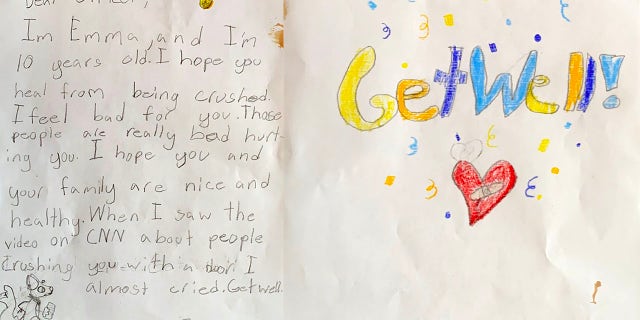 Dear Officer,
Im Emma, and I'm
10 years old. I hope you
heal from being crushed.
I feel bad for you. Those
people are really bad hurt-
ing you. I hope you and
your family are nice and
healthy. When I saw the
video on CNN about people
Crushing you with a door I
almost cried. Get well.
Get Well!